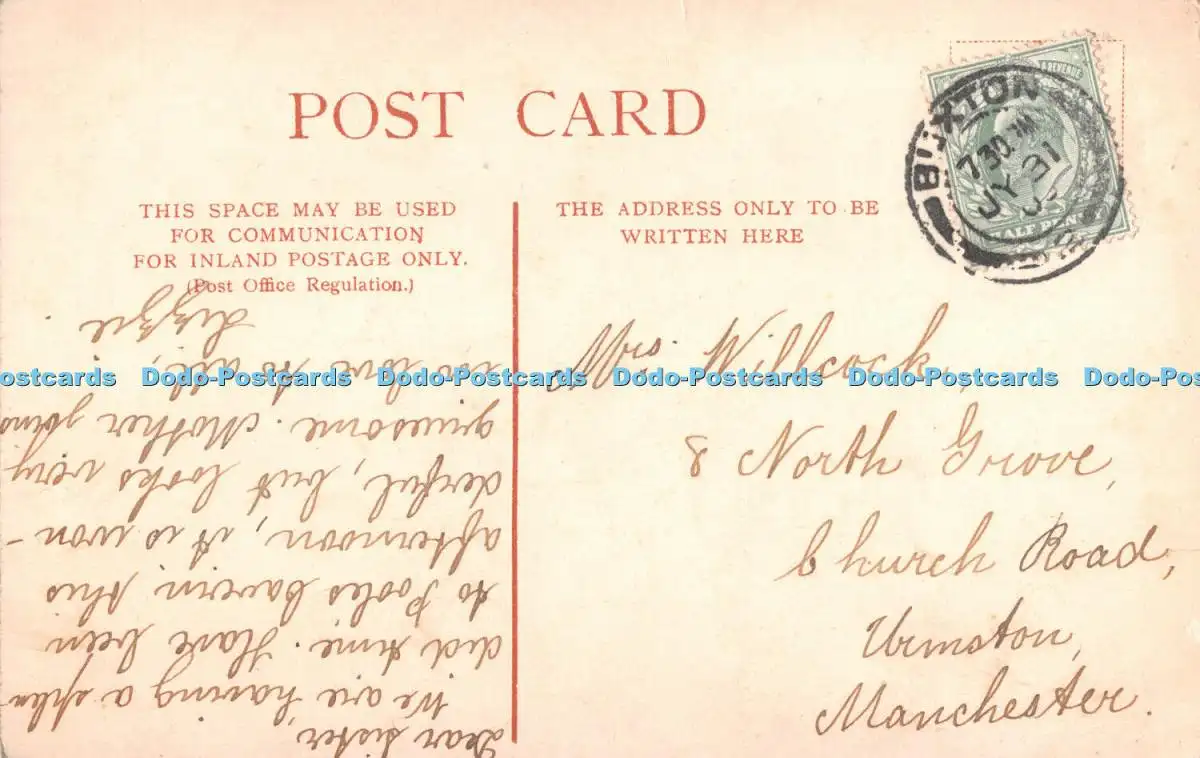 POST CARD
THIS SPACE MAY BE USED
FOR COMMUNICATION
FOR INLAND POSTAGE ONLY.
(Post Office Regulation.)
THE ADDRESS ONLY TO BE
WRITTEN HERE
BUXTON
7 30 PM
JY 31
& REVENUE
HALFPENNY
Mrs. Willcock,
8 North Grove,
Church Road,
Urmston,
Manchester.
Dear Sister,
We are having a splen-
did time. Have been
to Pooles Cavern this
afternoon, it is won-
derful, but looks very
gruesome. Mother joins
in love to all,
Lizzie.
ostcards Dodo-Postcards Dodo-Postcards Dodo-Postcards Dodo-Postcards Dodo-Pos